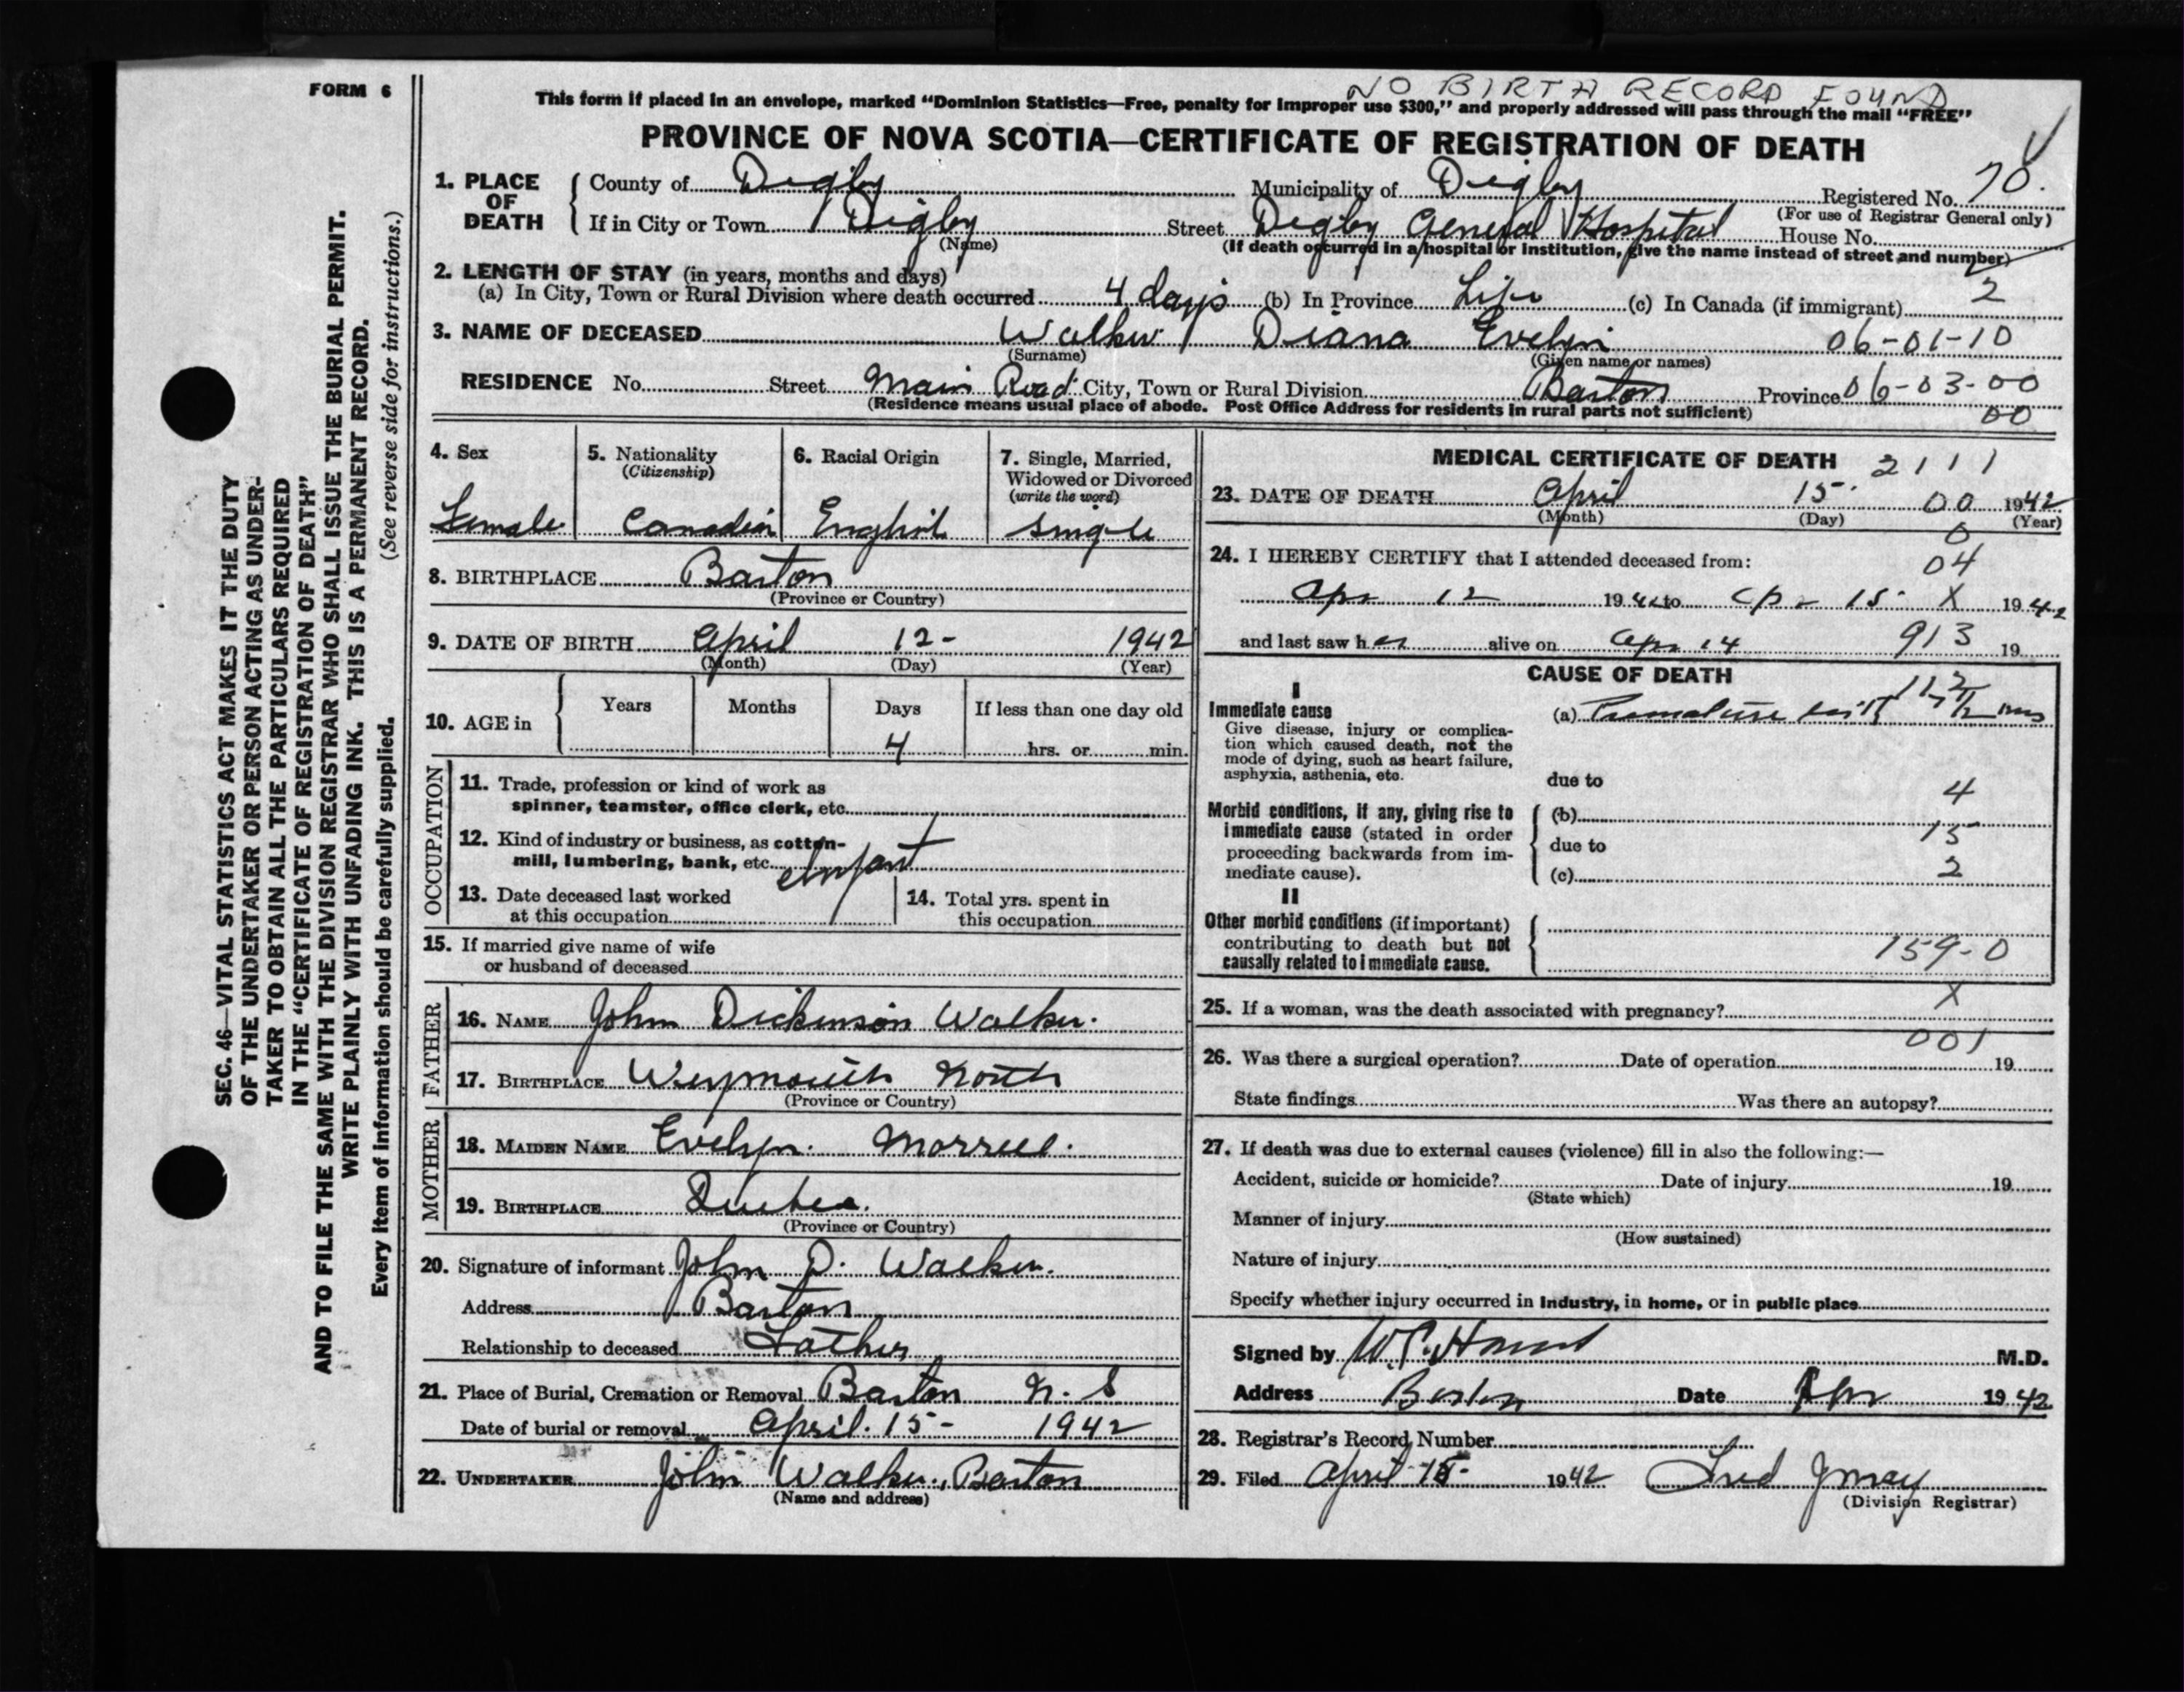 FORM 6
NO BIRTH RECORD FOUND
This form if placed in an envelope, marked "Dominion Statistics—Free, penalty for improper use $300," and properly addressed will pass through the mail "FREE"
PROVINCE OF NOVA SCOTIA—CERTIFICATE OF REGISTRATION OF DEATH
1. PLACE OF DEATH { County of Digby Municipality of Digby Registered No. 70.
(For use of Registrar General only)
If in City or Town Digby (Name) Street Digby General Hospital House No.
(If death occurred in a hospital or institution, give the name instead of street and number)
2. LENGTH OF STAY (in years, months and days)
(a) In City, Town or Rural Division where death occurred 4 days (b) In Province Life (c) In Canada (if immigrant) 2
3. NAME OF DECEASED Walker Diana Evelyn 06-01-10
(Surname) (Given name or names)
RESIDENCE No. Street Main Road City, Town or Rural Division Barton Province 06-03-00
(Residence means usual place of abode. Post Office Address for residents in rural parts not sufficient) 00
4. Sex
Female
5. Nationality
(Citizenship)
Canadian
6. Racial Origin
English
7. Single, Married,
Widowed or Divorced
(write the word)
Single
8. BIRTHPLACE Barton
(Province or Country)
9. DATE OF BIRTH April 12- 1942
(Month) (Day) (Year)
10. AGE in { Years Months Days If less than one day old
4 hrs. or min.
OCCUPATION
11. Trade, profession or kind of work as
spinner, teamster, office clerk, etc.
12. Kind of industry or business, as cotton-
mill, lumbering, bank, etc. infant
13. Date deceased last worked
at this occupation
14. Total yrs. spent in
this occupation
15. If married give name of wife
or husband of deceased
FATHER
16. NAME John Dickinson Walker.
17. BIRTHPLACE Weymouth North
(Province or Country)
MOTHER
18. MAIDEN NAME Evelyn. Morrell.
19. BIRTHPLACE Quebec.
(Province or Country)
20. Signature of informant John D. Walker.
Address Barton
Relationship to deceased Father
21. Place of Burial, Cremation or Removal Barton N. S
Date of burial or removal April. 15- 1942
22. UNDERTAKER John Walker, Barton
(Name and address)
MEDICAL CERTIFICATE OF DEATH 2111
23. DATE OF DEATH April 15. 00 1942
(Month) (Day) (Year)
0
24. I HEREBY CERTIFY that I attended deceased from: 04
Apr 12 1942 to Ap 15 X 1942
and last saw her alive on Apr 14 913 19
CAUSE OF DEATH
I
Immediate cause
Give disease, injury or complica-
tion which caused death, not the
mode of dying, such as heart failure,
asphyxia, asthenia, etc.
(a) Premature birth 7 1/2 mos
due to
4
Morbid conditions, if any, giving rise to
immediate cause (stated in order
proceeding backwards from im-
mediate cause).
(b)
15
due to
(c) 2
II
Other morbid conditions (if important)
contributing to death but not
causally related to immediate cause.
159-0
25. If a woman, was the death associated with pregnancy? X
001
26. Was there a surgical operation? Date of operation 19
State findings Was there an autopsy?
27. If death was due to external causes (violence) fill in also the following:—
Accident, suicide or homicide? Date of injury 19
(State which)
Manner of injury
(How sustained)
Nature of injury
Specify whether injury occurred in Industry, in home, or in public place
Signed by M.D.
Address Date Apr 1942
28. Registrar's Record Number
29. Filed April 15- 1942 Fred
(Division Registrar)
SEC. 46—VITAL STATISTICS ACT MAKES IT THE DUTY
OF THE UNDERTAKER OR PERSON ACTING AS UNDER-
TAKER TO OBTAIN ALL THE PARTICULARS REQUIRED
IN THE "CERTIFICATE OF REGISTRATION OF DEATH"
AND TO FILE THE SAME WITH THE DIVISION REGISTRAR WHO SHALL ISSUE THE BURIAL PERMIT.
WRITE PLAINLY WITH UNFADING INK. THIS IS A PERMANENT RECORD.
Every item of information should be carefully supplied. (See reverse side for instructions.)